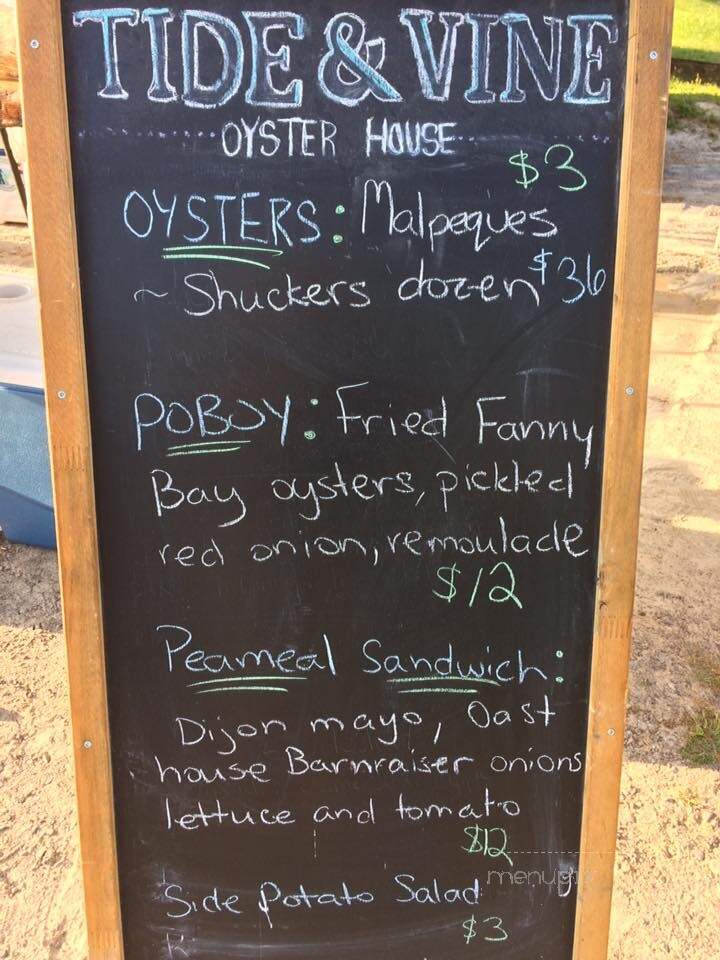 TIDE & VINE
OYSTER HOUSE
$3
OYSTERS: Malpeques
~ Shuckers dozen $36
POBOY: Fried Fanny
Bay oysters, pickled
red onion, remoulade
$12
Peameal Sandwich:
Dijon mayo, Oast
house Barnraiser onions
lettuce and tomato
$12
menupix
Side Potato Salad
$3